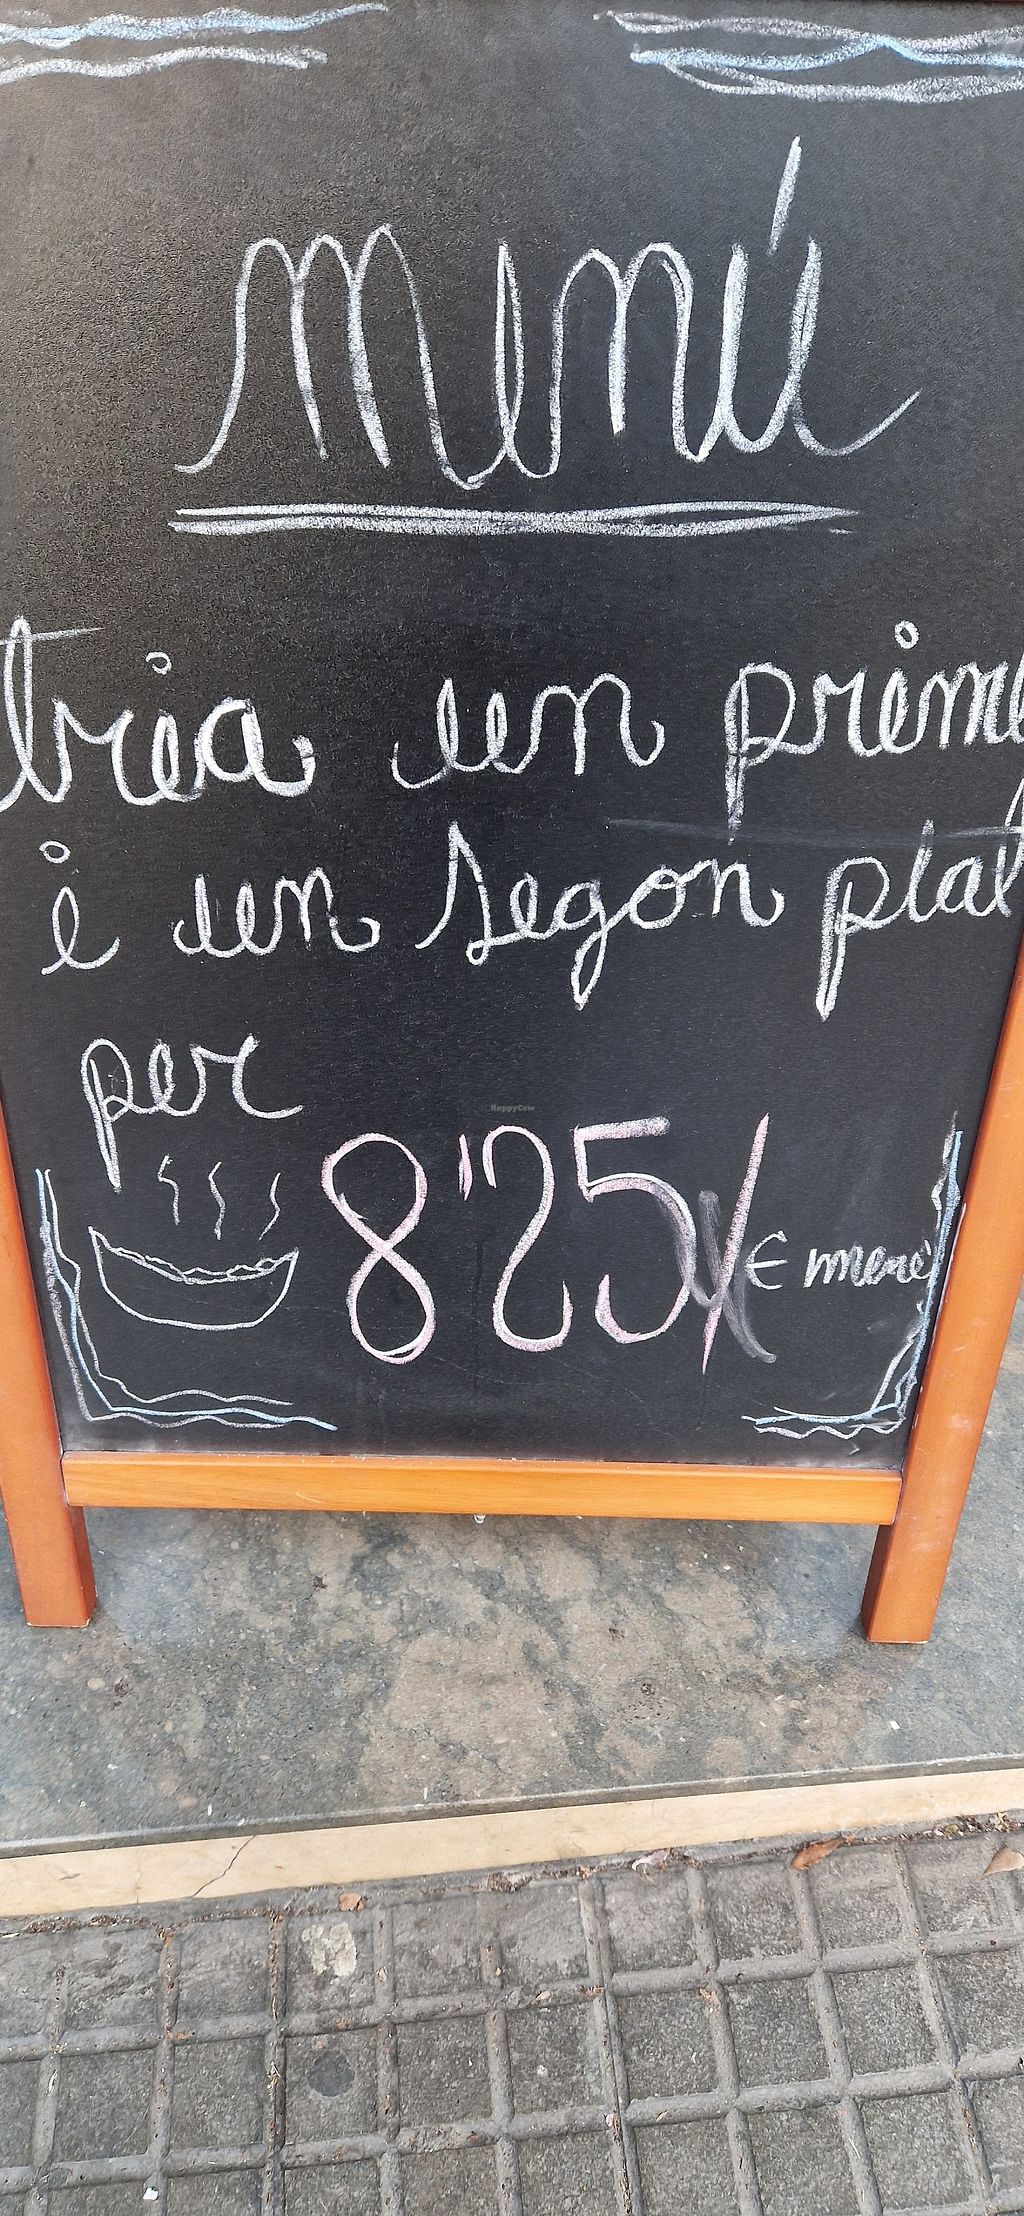 Menú
tria un primer
i un segon plat
per
8'25/€ menú
HappyCow